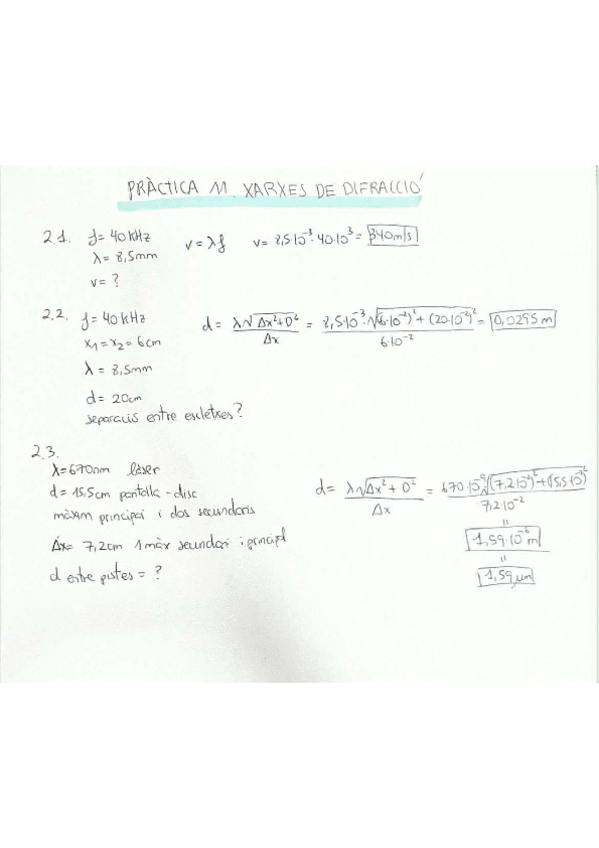 PRÀCTICA 11. XARXES DE DIFRACCIÓ
2.1. f = 40 kHz
λ = 8,5mm
v = ?
v = λf v = 8,5·10⁻³·40·10³ = 340m/s
2.2. f = 40 kHz
x₁ = x₂ = 6cm
λ = 8,5mm
d = 20cm
separació entre escletxes?
d = λ√Δx²+D² / Δx = 8,5·10⁻³·√(6·10⁻²)²+(20·10⁻²)² / 6·10⁻² = 0,0295 m
2.3.
λ = 670nm làser
d = 15,5cm pantalla - disc
màxim principal i dos secundaris
Δx = 7,2cm 1 màx secundari i principal
d entre pistes = ?
d = λ√Δx²+D² / Δx = 670·10⁻⁹√(7,2·10⁻²)²+(15,5·10⁻²)² / 7,2·10⁻²
=
1,59·10⁻⁶m
=
1,59 μm